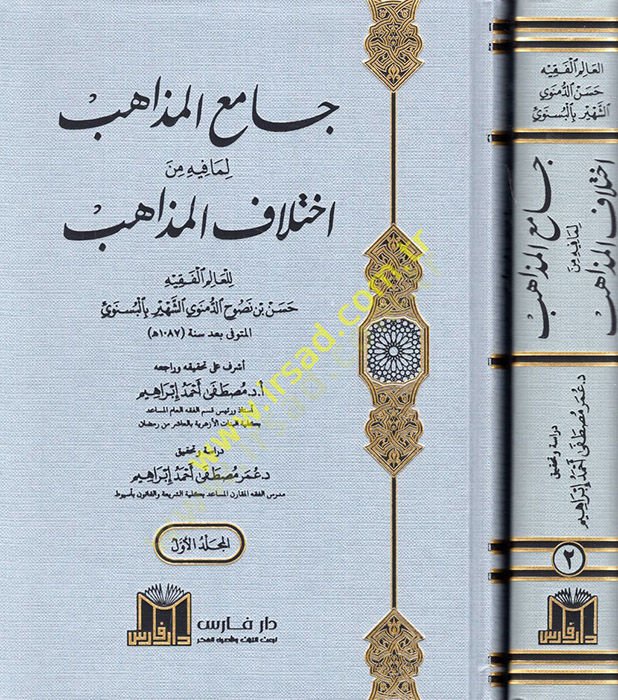 جامع المذاهب
لِمَا فِيهِ مِنَ
اختلاف المذاهب
لِلعَالِمِ الْفَقِيْهِ
حَسَن بْن نَصُوح الدُّمنَوِي الشَّهِيْرِ بِالْبُسنَوِيِّ
المتوفى بعد سنة (١٠٨٧هـ)
أشرف على تحقيقه وراجعه
أ.د. مُصْطَفَى أَحْمَد إِبْرَاهِيم
أستاذ ورئيس قسم الفقه العام المساعد
بكلية البنات الأزهرية بالعاشر من رمضان
دراسة وتحقيق
د. عُمَر مُصْطَفَى أَحْمَد إِبْرَاهِيم
مدرس الفقه المقارن المساعد بكلية الشريعة والقانون بأسيوط
المجَلّدُ الأَوّل
دار فارس
دار فارس
www.irsad.com.tr
العَالِمِ الْفَقِيْهِ
حَسَن الدُّمنَوِي
الشَّهِيْرِ بِالْبُسنَوِيِّ
جامع المذاهب
لِمَا فِيهِ مِنَ
اختلاف المذاهب
دراسة وتحقيق
د. عُمَر مُصْطَفَى أَحْمَد إِبْرَاهِيم
٢
دار فارس